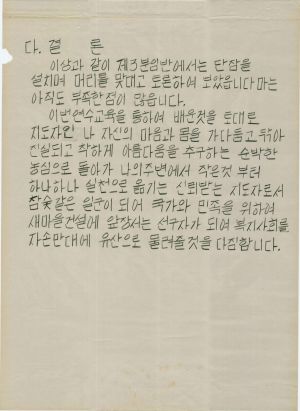 다. 결 론
이상과 같이 제3분임반에서는 단잠을
설치며 머리를 맞대고 토론하여 보았읍니다마는
아직도 부족한점이 많읍니다.
이번연수교육을 통하여 배운것을 토대로
지도자인 나 자신의 마음과 몸을 가다듬고 닦아
진실되고 착하게 아름다움을 추구하는 순박한
농심으로 돌아가 나의주변에서 작은것 부터
하나하나 실천으로 옮기는 신뢰받는 지도자로서
참숯같은 일군이 되어 국가와 민족을 위하여
새마을건설에 앞장서는 선구자가 되여 복지사회를
자손만대에 유산으로 물려줄것을 다짐합니다.